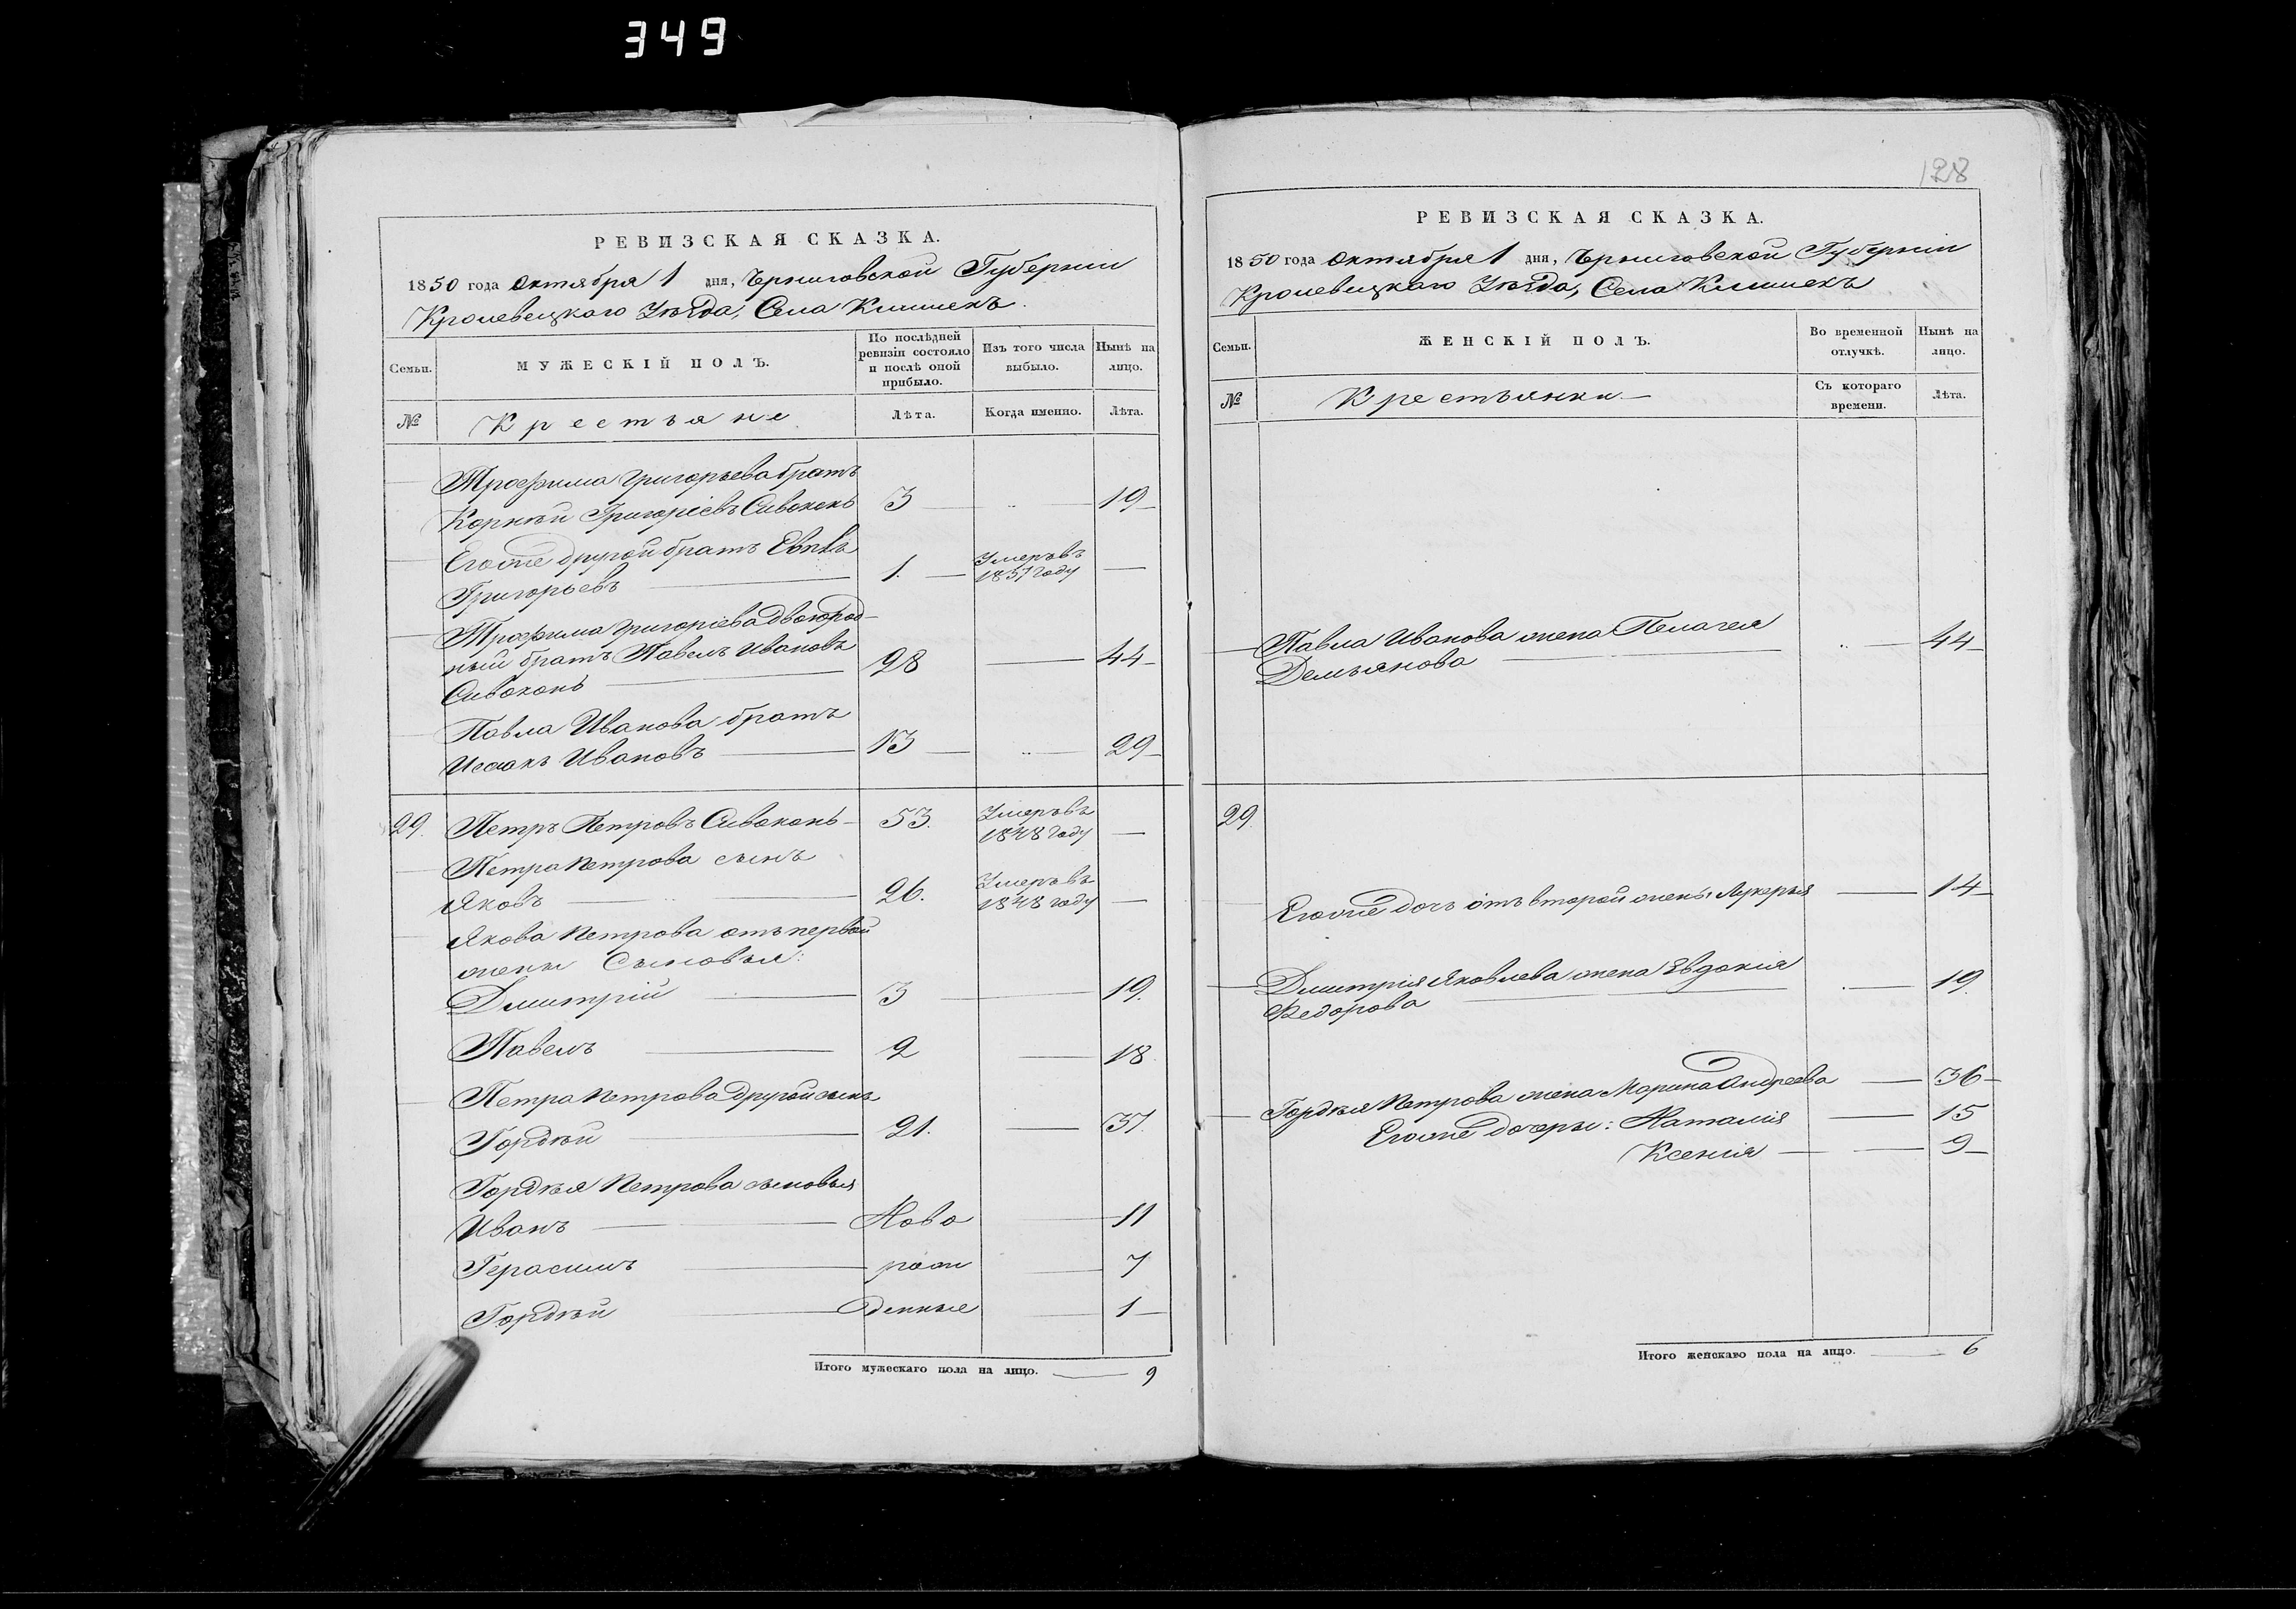 349
РЕВИЗСКАЯ СКАЗКА.
1850 года Октября 1 дня, Черниговской Губерніи
Кролевецкаго Уѣзда, Села Клишекъ.
Семьи.
МУЖЕСКІЙ ПОЛЪ.
По послѣдней ревизіи состояло и послѣ оной прибыло.
Изъ того числа выбыло.
Нынѣ на лицо.
№
Крестьяне
Лѣта.
Когда именно.
Лѣта.
Трофима Григорьева братъ
Корнѣй Григоріевъ Сивоконь 3 19
Егоже другой братъ
Григорьевъ 1. Умеръ въ 1837 году
Трофима Григоріева двоюрод-
ный братъ Павелъ Ивановъ 28 44
Сивоконь
Павла Иванова братъ
Исаакъ Ивановъ 13 29
29. Петръ Петровъ Сивоконь 53. Умеръ въ 1848 году
Петра Петрова сынъ
Яковъ 26. Умеръ въ 1848 году
Якова Петрова отъ первой
жены Сыновья:
Дмитрій 3 19.
Павелъ 2 18.
Петра Петрова другой сынъ
Гордѣй 21. 37.
Гордѣя Петрова сыновья
Иванъ Ново 11
Герасимъ рож 7
Гордѣй денные 1
Итого мужескаго пола на лицо. 9
128
РЕВИЗСКАЯ СКАЗКА.
1850 года Октября 1 дня, Черниговской Губерніи
Кролевецкаго Уѣзда, Села Клишекъ
Семьи.
ЖЕНСКІЙ ПОЛЪ.
Во временной отлучкѣ.
Нынѣ на лицо.
№
Крестьянки
Съ котораго времени.
Лѣта.
Павла Иванова жена Пелагея 44
Демьянова
29
Егоже дочь отъ второй жены Лукерья 14
Дмитрія Яковлева жена Евдокія 19.
Федорова
Гордѣя Петрова жена Марина Андреева 36
Егоже дочери: Наталія 15
Ксенія 9
Итого женскаго пола на лицо. 6